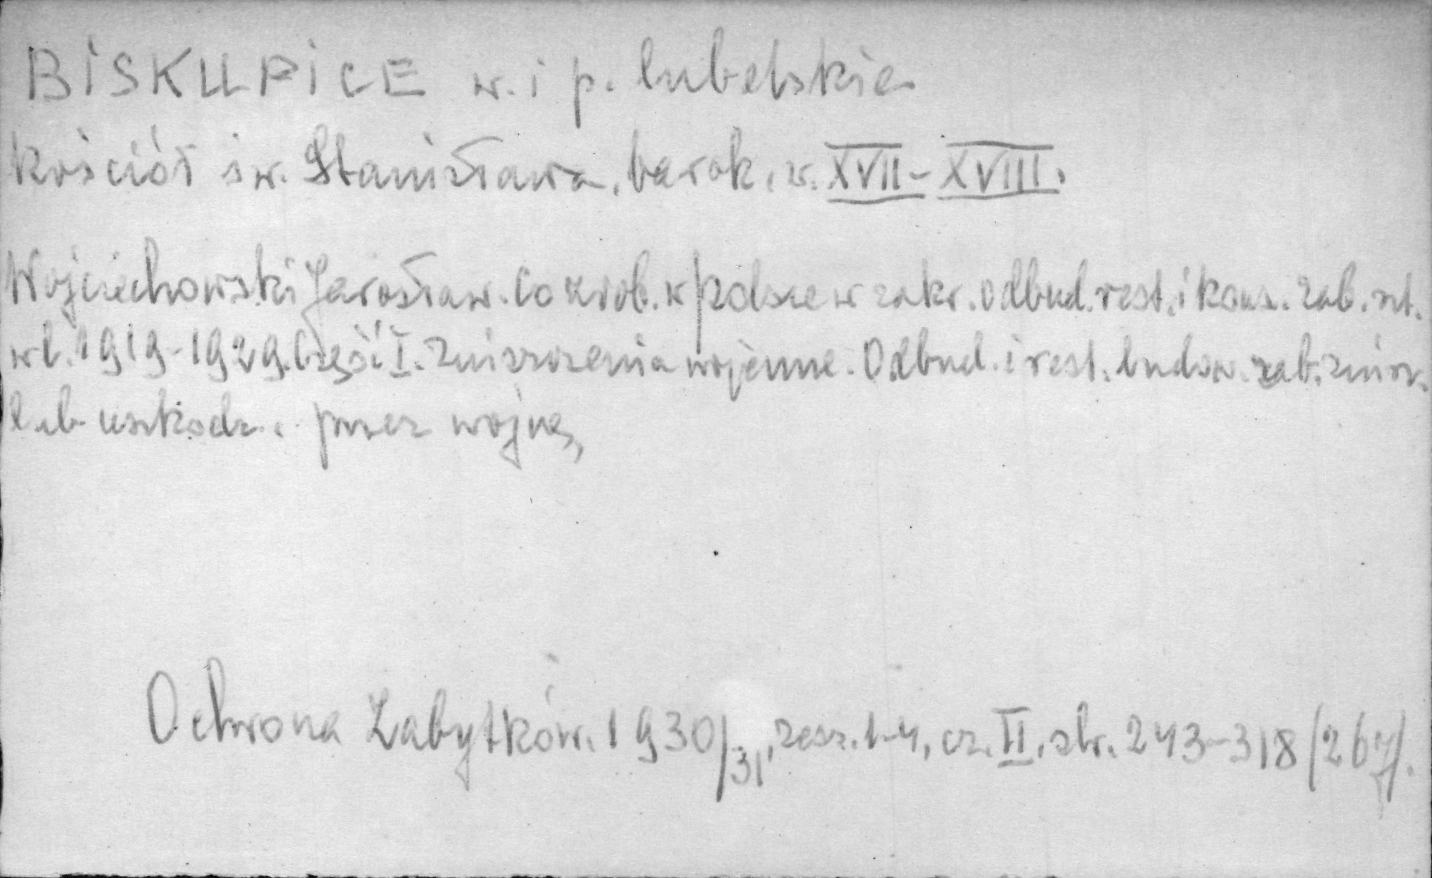 BISKUPICE w. i p. lubelskie
Kościół św. Stanisława, barok, w. XVII-XVIII.
Wojciechowski Jarosław. Co zrob. w Polsce w zakr. odbud. rest. i kons. zab. szt.
w l. 1919-1929. Część I. Zniszczenia wojenne. Odbud. i rest. budow. zab. zniszcz.
lub uszkodz. przez wojnę,
Ochrona Zabytków. 1930/31, zesz. 1-4, cz. II, str. 243-318 /267/.